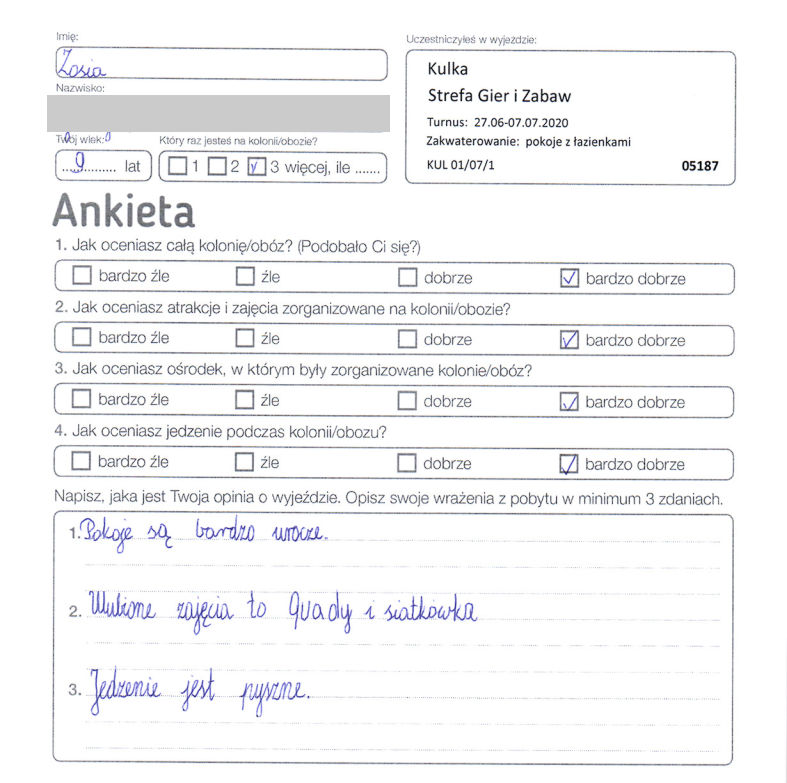 Imię:
Zosia
Nazwisko:
Twój wiek:
9 lat
Który raz jesteś na kolonii/obozie?
1 2 3 więcej, ile .......
Uczestniczyłeś w wyjeździe:
Kulka
Strefa Gier i Zabaw
Turnus: 27.06-07.07.2020
Zakwaterowanie: pokoje z łazienkami
KUL 01/07/1 05187
Ankieta
1. Jak oceniasz całą kolonię/obóz? (Podobało Ci się?)
bardzo źle źle dobrze bardzo dobrze
2. Jak oceniasz atrakcje i zajęcia zorganizowane na kolonii/obozie?
bardzo źle źle dobrze bardzo dobrze
3. Jak oceniasz ośrodek, w którym były zorganizowane kolonie/obóz?
bardzo źle źle dobrze bardzo dobrze
4. Jak oceniasz jedzenie podczas kolonii/obozu?
bardzo źle źle dobrze bardzo dobrze
Napisz, jaka jest Twoja opinia o wyjeździe. Opisz swoje wrażenia z pobytu w minimum 3 zdaniach.
1. Pokoje są bardzo urocze.
2. Ulubione zajęcia to Quady i siatkówka
3. Jedzenie jest pyszne.